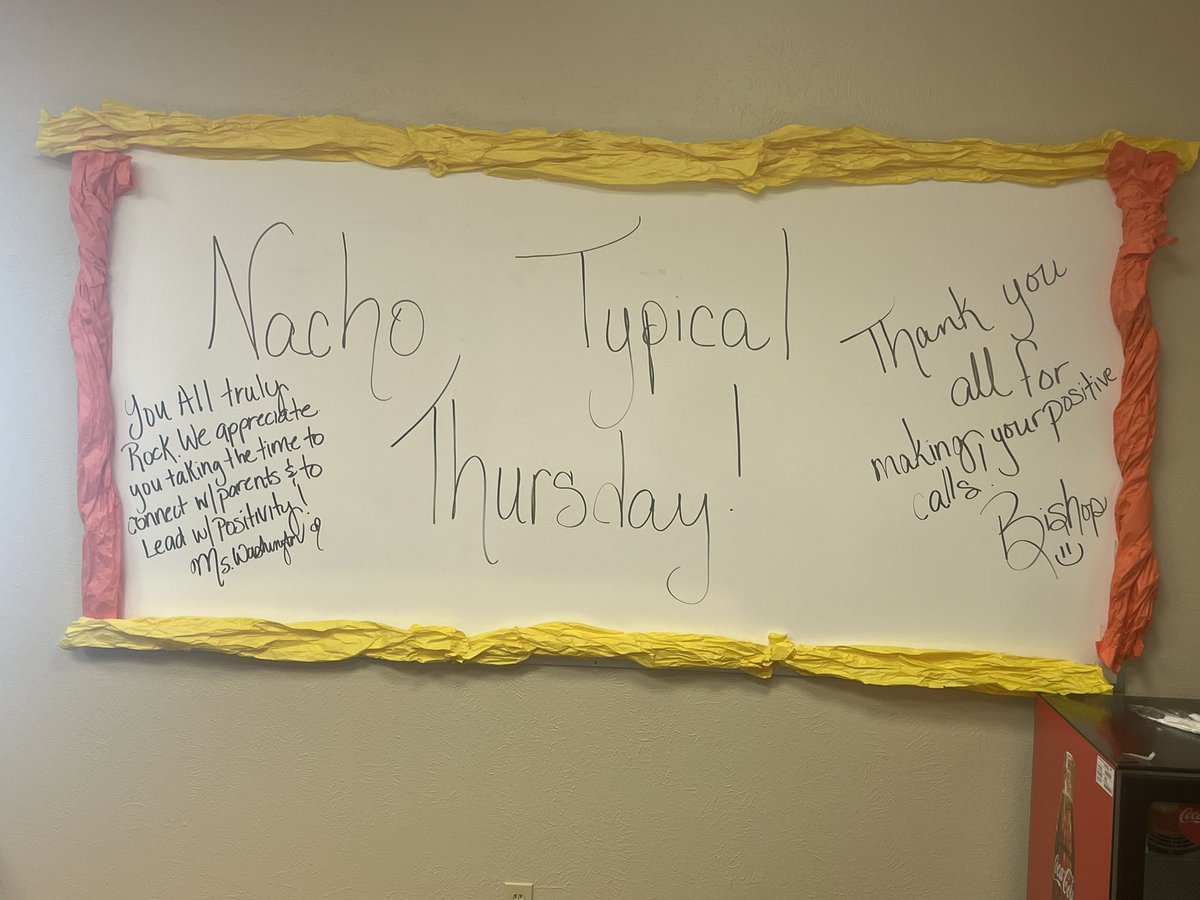 Nacho Typical
Thursday!
You All truly
Rock. We appreciate
you taking the time to
connect w/parents & to
Lead w/Positivity!
Ms. Washington
Thank you
all for
making your positive
calls.
Bishop
Coca-Cola